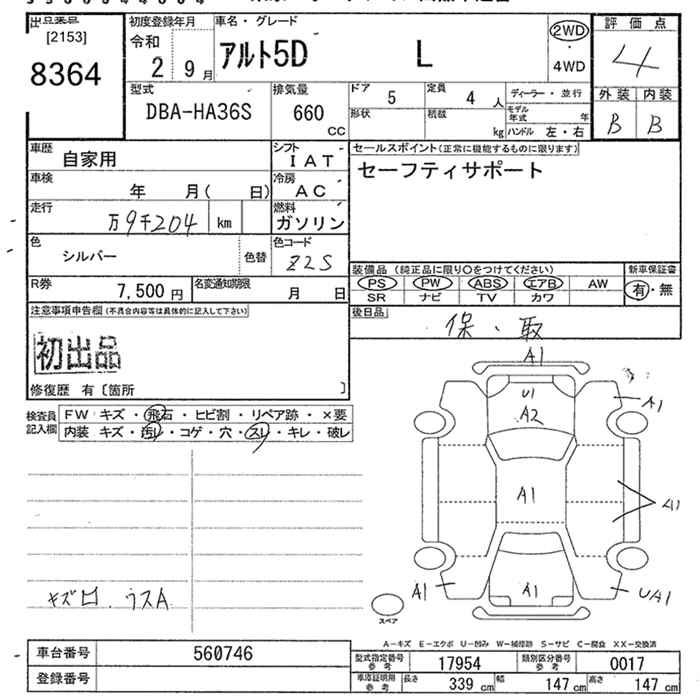 [2153]
8364
初度登録年月
令和
2 9月
車名・グレード
アルト5D L
2WD
・
4WD
評価点
4
外装 内装
B B
型式
DBA-HA36S
排気量
660
CC
ドア 5
定員 4 人
形状
積載 kg
ディーラー・並行
モデル年式 年
ハンドル 左・右
車歴
自家用
シフト
IAT
車検
年 月( 日)
冷房
AC
走行
万9千204 km
燃料
ガソリン
色
シルバー
色替
色コード
Z2S
R券
7,500円
名変通知期限
月 日
セールスポイント(正常に機能するものに限ります)
セーフティサポート
装備品 (純正品に限り○をつけてください)
PS PW ABS エアB AW
SR ナビ TV カワ
新車保証書
有・無
後日品
保・取
注意事項申告欄(不具合内容等は具体的に記入して下さい)
初出品
修復歴 有〔箇所 〕
検査員
記入欄
FW キズ・飛石・ヒビ割・リペア跡・×要
内装 キズ・汚レ・コゲ・穴・スレ・キレ・破レ
A1
U1
A2
A1
A1
A1
A1
A1
UA1
キズ ウスA
スペア
A-キズ E-エクボ U-凹み W-補修跡 S-サビ C-腐食 XX-交換済
車台番号 560746
登録番号
型式指定番号
参考
17954
類別区分番号
参考
0017
車庫証明用
参考
長さ 339 cm 幅 147 cm 高さ 147 cm